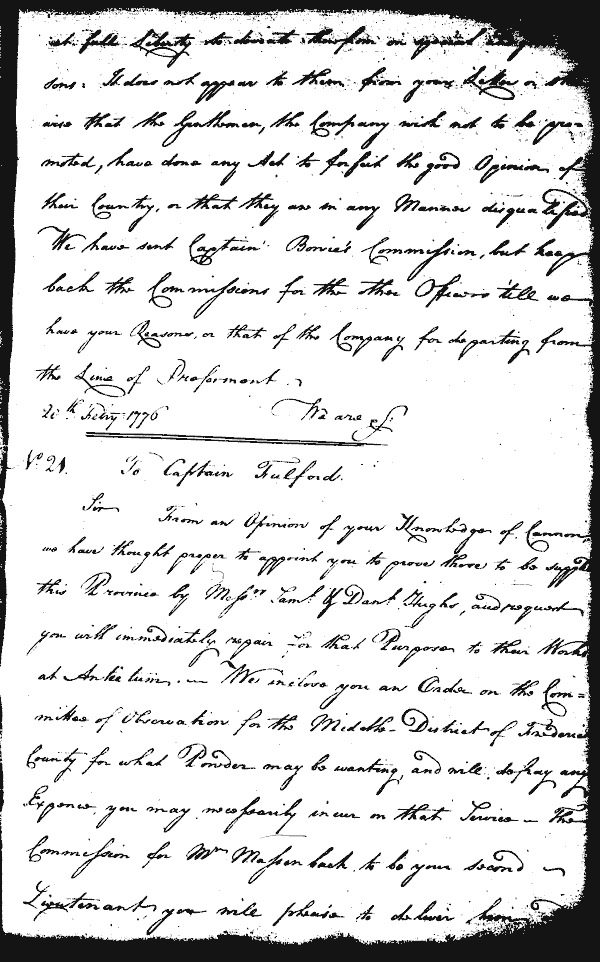 at full Liberty to deviate therefrom on special
sons: It does not appear to them from your Letter or
wise that the Gentlemen, the Company wish not to be pro=
moted, have done any Act to forfeit the good Opinion of
their Country, or that they are in any Manner disqualified
We have sent Captain Bowie's Commission, but keep
back the Commissions for the other Officers 'till we
have your Reasons, or that of the Company for departing from
the Line of Preferment.
20th Febry 1776 We are &c.
No. 21. To Captain Fulford.
Sir From an Opinion of your Knowledge of Cannon,
we have thought proper to appoint you to prove those to be
this Province by Messrs Saml. & Danl. Hughs, and request
you will immediately repair for that Purpose to their Works
at Antietum. — We inclose you an Order on the Com=
mittee of Observation for the Middle-District of Frederic
County for what Powder may be wanting, and will defray any
Expence you may necessarily incur on that Service — The
Commission for Mr. Massenback to be your second
Lieutenant you will please to deliver him